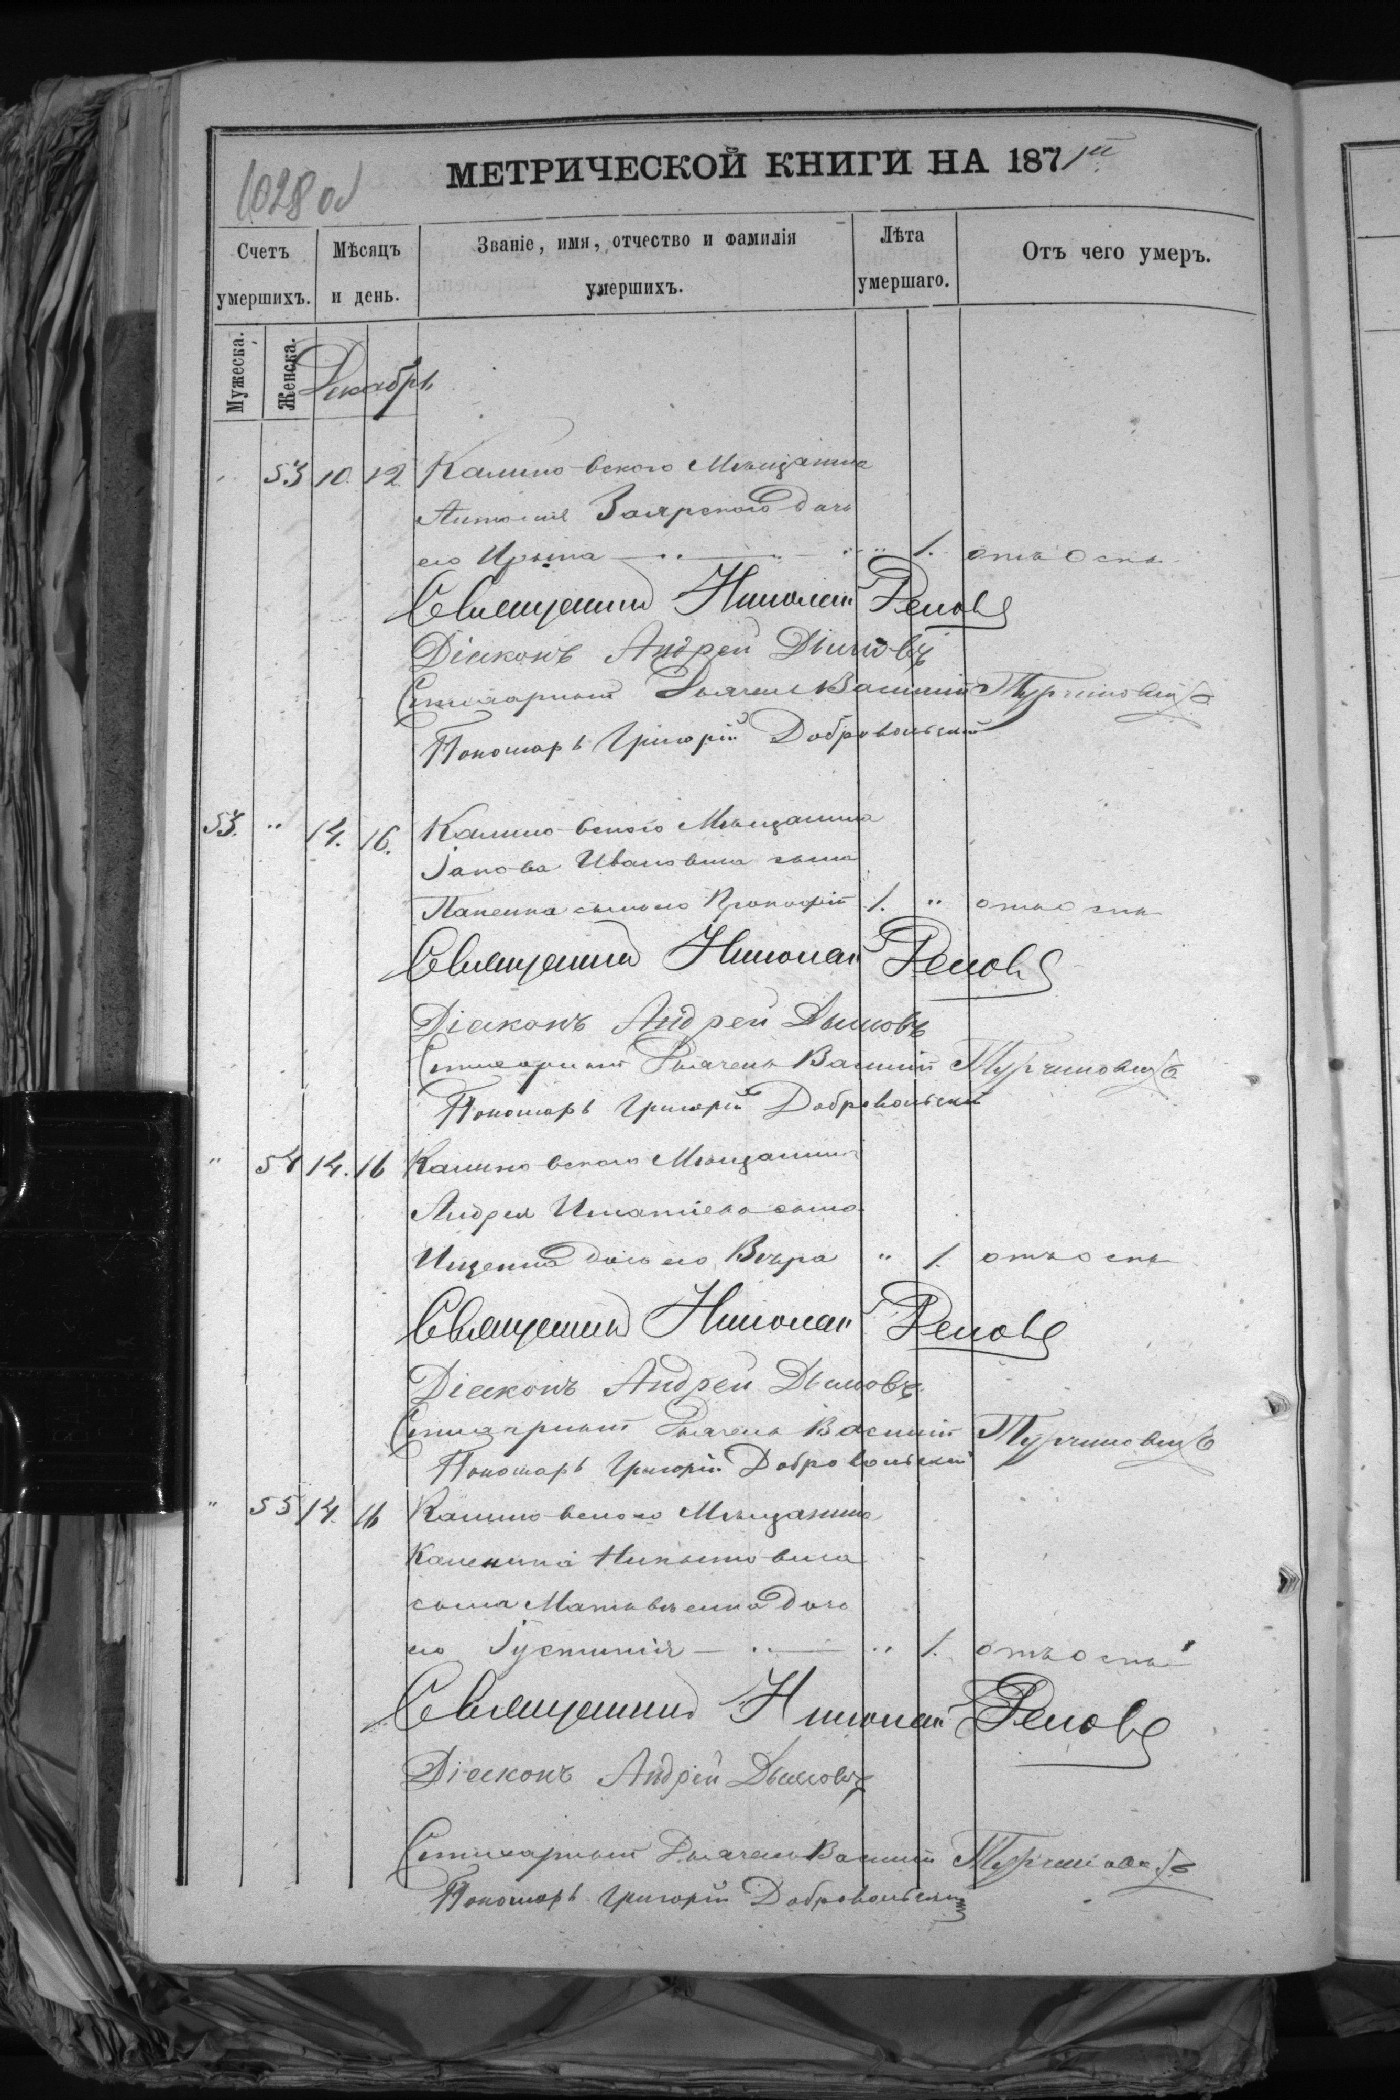 1028 об
МЕТРИЧЕСКОЙ КНИГИ НА 1871й
Счетъ умершихъ. Мѣсяцъ и день. Званіе, имя, отчество и фамилія умершихъ. Лѣта умершаго. Отъ чего умеръ.
Мужеска. Женска. Декабрь
53 10. 12 Калиновского Мѣщанина
Антонія Заярского дочь
его Ирына 1. отъ оспы
Священникъ Николай
Діаконъ Андрей Дымовъ
Стихарный Дьячекъ Василий Турчиновичъ
Пономарь Григорій Добровольскій
53. " 14. 16. Калиновского Мѣщанина
Іакова Иванова сына
сынъ его Прокофій 1. " отъ оспы
Священникъ Николай
Діаконъ Андрей Дымовъ
Стихарный Дьячекъ Василий Турчиновичъ
Пономарь Григорій Добровольскій
" 54 14. 16 Калиновского Мѣщанина
Андрея Игнатіева сына
Ищенка дочь его Вѣра " 1. отъ оспы
Священникъ Николай
Діаконъ Андрей Дымовъ
Стихарный Дьячекъ Василий Турчиновичъ
Пономарь Григорій Добровольскій
" 55 14. 16 Калиновского Мѣщанина
сына Матвѣенка дочь
его Іустинія " 1. отъ оспы
Священникъ Николай
Діаконъ Андрей Дымовъ
Стихарный Дьячекъ Василий Турчиновичъ
Пономарь Григорій Добровольскій